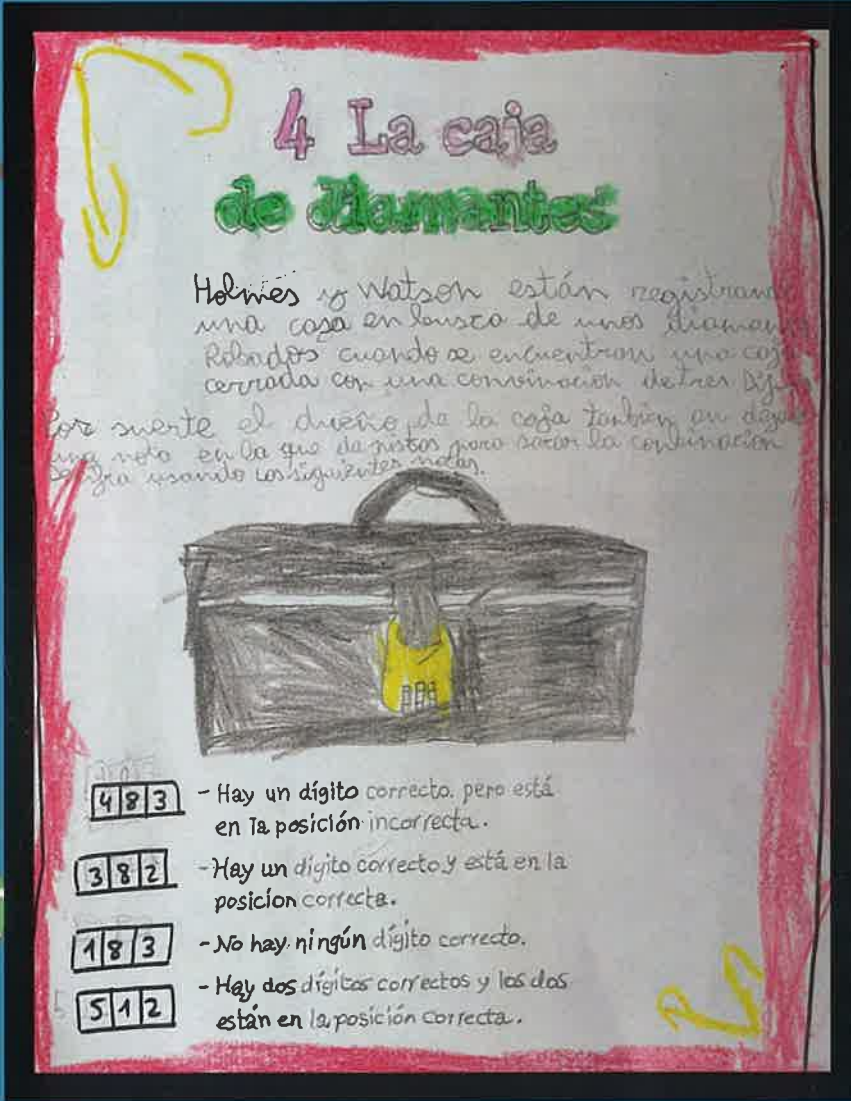 4 La caja
de diamantes
Holmes y Watson están registrand
una casa en busca de unos diaman
Robados cuando se encuentran una caj
cerrada con una convinacion de tres Díj
Por suerte el dueño de la caja tanbien an deja
una nota en la que da pistas para sacar la conbinacion
usando los siguientes
483 - Hay un dígito correcto. pero está
en la posición incorrecta.
382 - Hay un digito correcto y está en la
posicion correcta.
183 - No hay ningún dígito correcto.
512 - Hay dos dígitos correctos y los dos
están en la posición correcta.